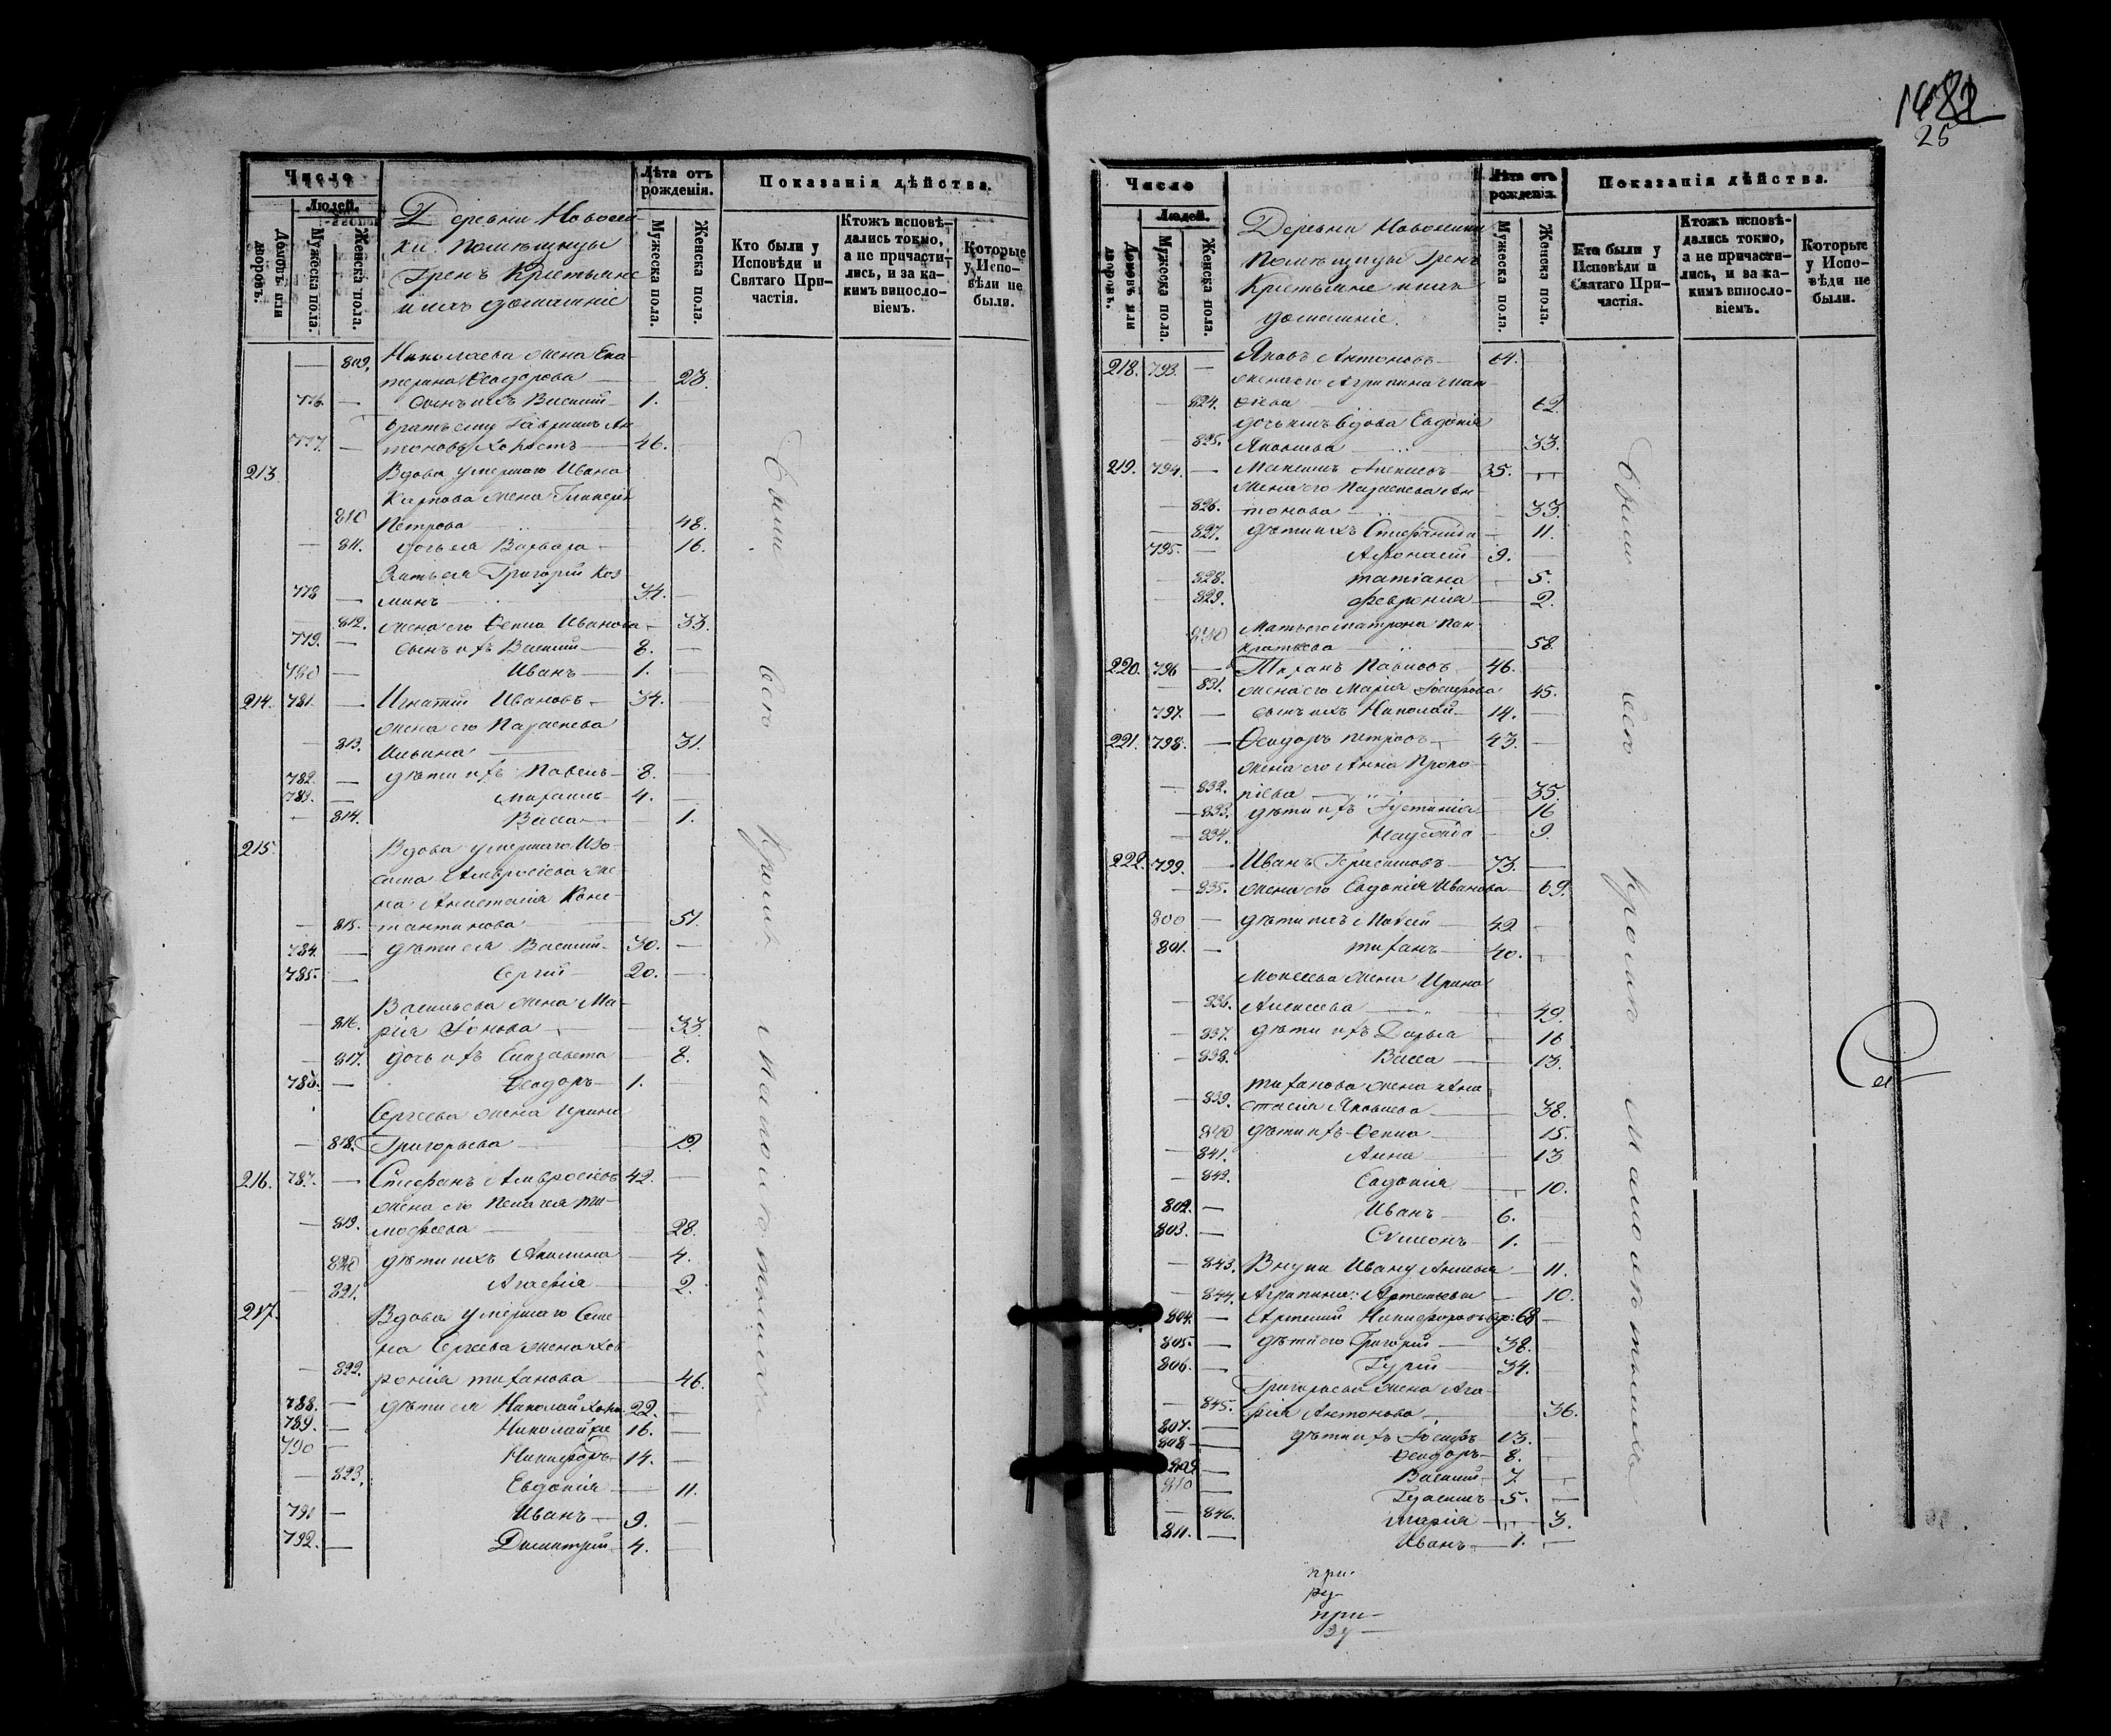 Число
Людей.
Домовъ или дворовъ.
Мужеска пола.
Женска пола.
Деревни Новосел-
ки помѣщицы
Гренъ Крестьяне
и ихъ домашніе
Лѣта отъ рожденія.
Мужеска пола.
Женска пола.
Показанія дѣйства.
Кто были у Исповѣди и Святаго Причастія.
Ктожъ исповѣдались токмо, а не причастились, и за какимъ винословіемъ.
Которые у Исповѣди не были.
809. Николаева жена Ека-
терина Ѳеодорова — 23.
776. — сынъ ихъ Василій — 1.
братъ ему Гавріилъ Ан-
777. — тоновъ Холостъ — 46. —
213. Вдова умершаго Ивана
Карпова жена Гликерія
810 Петрова — 48.
— 811. дочь ея Варвара — 16.
Зять ея Григорій Коз-
778 — минъ — 34. —
— 812. жена его Ѳекла Иванова — 33.
779. — сынъ ихъ Василій — 8. —
780 — Иванъ — 1. —
214. 781. — Игнатій Ивановъ — 34. —
жена его Параскева
— 813. Ильина — 31.
782. — дѣти ихъ Павелъ — 8. —
783. — Михаилъ — 4. —
— 814. Васса — 1.
215. Вдова умершаго Изо-
сима Амвросіева же-
на Анастасія Конс-
— 815. тантинова — 51.
784. — дѣти ея Василій — 30. —
785. — Сергій — 20. —
Васильева жена Ма-
— 816. рія Іонова — 33
— 817. дочь ихъ Елизавета — 8.
786. — Ѳеодоръ — 1. —
Сергѣева жена Ирина
— 818. Григорьева — 19.
216. 787. — Стефанъ Амвросіевъ 42. —
жена его Пелагея Ти-
— 819. моѳеева — 28.
820 дѣти ихъ Акилина — 4.
— 821. Агафія — 2.
217. Вдова умершаго Симе-
на Сергѣева жена Хов-
— 822. ронія Тихонова — 46.
788. — дѣти ея Николай Холос. 22. —
789. — Николай же 16. —
790 — Никифоръ — 14. —
— 823. Евдокія — 11.
791 — Иванъ — 9. —
792. — Димитрій — 4. —
Были всѣ кромѣ малолѣтныхъ
1682
25
Число
Людей.
Домовъ или дворовъ.
Мужеска пола.
Женска пола.
Деревни Новоселки
помѣщицы Гренъ
Крестьяне и ихъ
домашніе.
Лѣта отъ рожденія.
Мужеска пола.
Женска пола.
Показанія дѣйства.
Кто были у Исповѣди и Святаго Причастія.
Ктожъ исповѣдались токмо, а не причастились, и за какимъ винословіемъ.
Которые у Исповѣди не были.
218. 793. — Яковъ Антоновъ — 64.
жена его Агрипина
— 824. 62.
дочь ихъ вдова Евдокія
— 825. Яковлева — 33.
219. 794. — Максимъ Алексѣевъ — 35.
жена его Параскева Ан-
— 826. тонова — 33.
— 827. дѣти ихъ Стефанида — 11.
795. — Афонасій — 9. —
— 828. Татіана — 5.
829. Февронія — 2.
мать его Матрона Пан-
830 кратьева — 58.
220. 796 — Тиханъ Павловъ — 46. —
— 831. жена его Марія Іосифова 45.
797. — сынъ ихъ Николай — 14. —
221. 798. — Ѳеодоръ Петровъ — 43. —
жена его Анна Проко-
— 832. піева — 35.
— 833. дѣти ихъ Іустинія — 16
— 834. Надежда — 9.
222. 799. — Иванъ Герасимовъ — 73. —
— 835. жена его Евдокія Иванова — 69.
800 — дѣти ихъ Мокей — 42 —
801. — Тиханъ — 40.
Мокеева жена Ирина
— 836. Алексѣева — 42.
— 837. дѣти ихъ Дарья 16
— 838. Васса — 13.
Тиханова жена Ана
— 839. стасія Яковлева — 38.
840 дѣти ихъ Ѳекла — 15.
— 841. Анна — 13
— 842. Евдокія — 10.
802. — Иванъ — 6. —
803. — Симеонъ — 1. —
— 843. Внуки Ивану — 11.
— 844. Агрипина Артемьева — 10.
804. — Артемій Никифоровъ вдо: 68 —
805. — дѣти его Григорій — 38.
806. — Гурій — 34.
Григорьева жена Ага-
— 845. фія Антонова — 36.
807. — дѣти ихъ Іосифъ 13. —
808 — Ѳеодоръ — 8. —
809 — Василій — 7. —
810 — Герасимъ — 5. —
— 846. Марія — 3.
811. — Иванъ — 1. —
Были всѣ кромѣ малолѣтныхъ